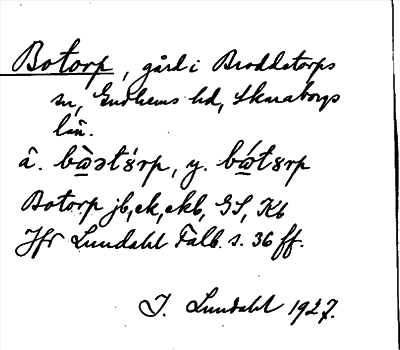 Botorp, gård i Broddetorps
sn, Gudhems hd, Skaraborgs
län.
ä. bὼət8́rp, y. bώt8rp
Botorp jb, ek, ekb, GS, Kb
Jfr Lundahl Falb. s. 36 ff.
I. Lundahl 1927.